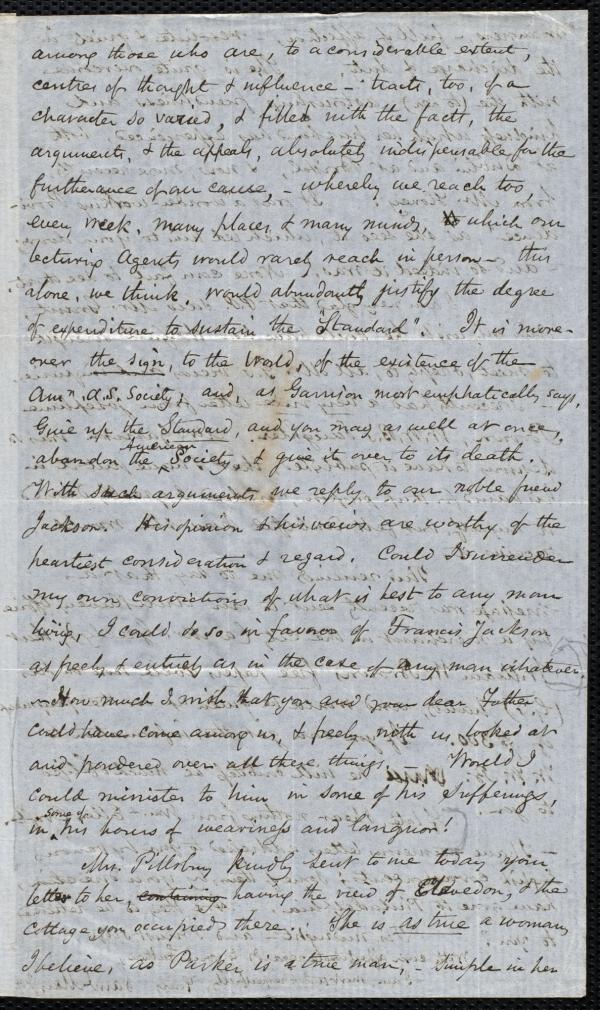 among those who are, to a considerable extent,
centres of thought & influence – tracts, too, of a
character so varied, & filled with the facts, the
arguments, & the appeals, absolutely indispensable for the
furtherance of our cause, – whereby we reach too,
every week, many places & many minds, which our
lecturing Agents would rarely reach in person – this
alone, we think, would abundantly justify the degree
of expenditure to sustain the "Standard". It is more-
over the sign, to the world, of the existence of the
Amn. A.S. Society, and, as Garrison most emphatically says,
Give up the Standard, and you may as well at once,
abandon the American Society, & give it over to its death.
With such arguments we reply to our noble friend
Jackson. His opinion & his views are worthy of the
heartiest consideration & regard. Could I surrender
my own convictions of what is best to any man
living, I could do so in favor of Francis Jackson
as freely & entirely as in the case of any man whatever.
– How much I wish that you and your dear Father
could have come among us, & freely with us looked at
and pondered over all these things. – Would I
could minister to him in some of his sufferings,
in some of his hours of weariness and languor!
Mrs. Pillsbury kindly sent to me today your
letter to her, containing having the view of Clevedon, & the
cottage you occupied there. She is as true a woman,
I believe, as Parker is a true man, – simple in her